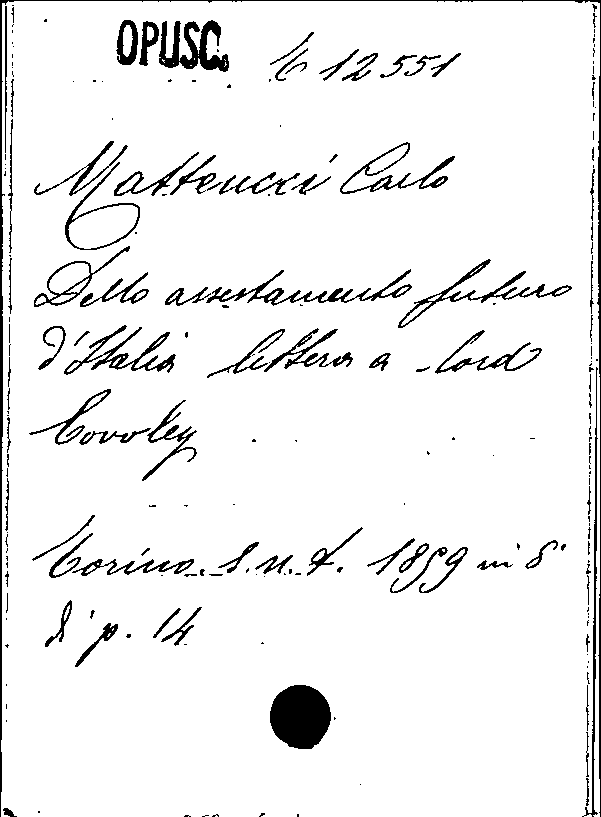 OPUSC. E 12551
Matteucci Carlo
Dello assestamento futuro
d'Italia lettera a lord
Covoley
Torino. S. n. t. 1859 in 8°
di p. 14